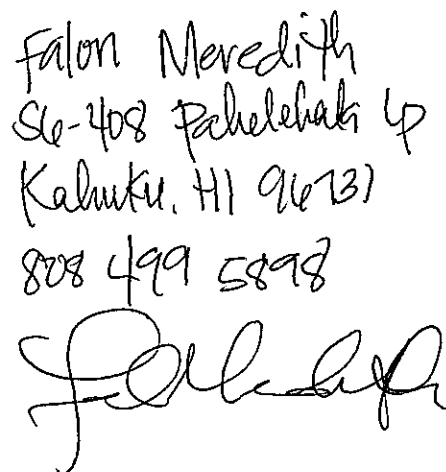 Falon Meredith
56-408 Pahelehala Lp
Kahuku, HI 96731
808 499 5898